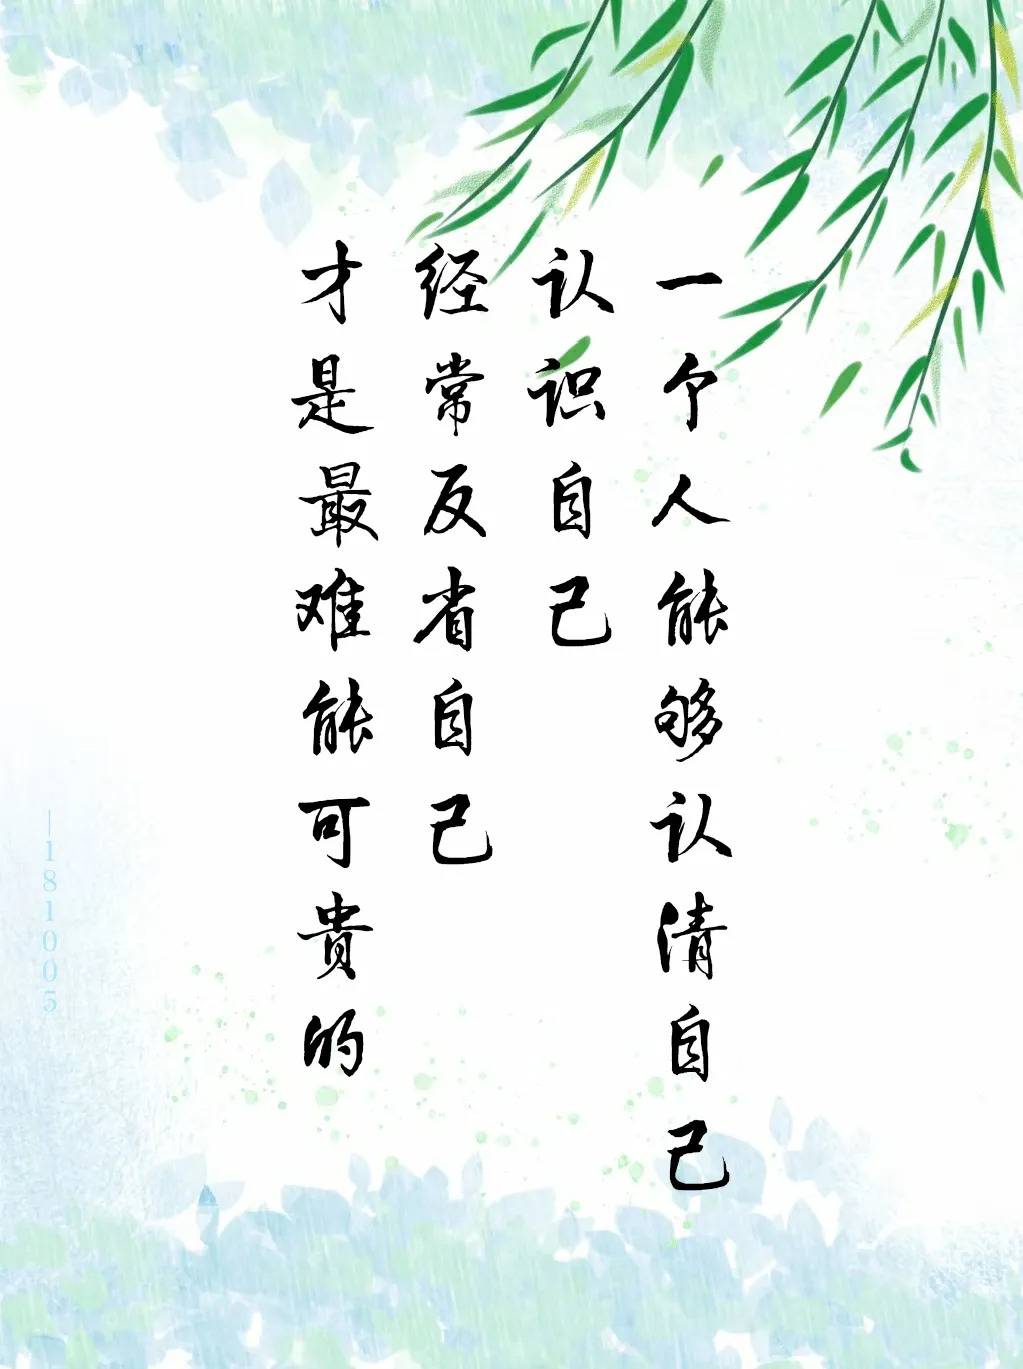 一个人能够认清自己
认识自己
经常反省自己
才是最难能可贵的
—181005